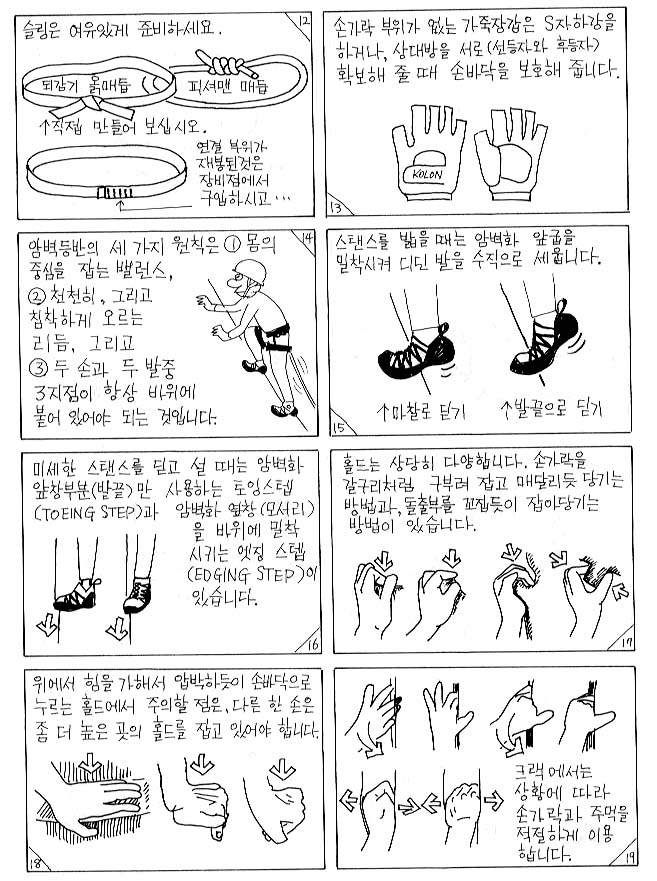 슬링은 여유있게 준비하세요.
12
되감기 옭매듭
피셔맨 매듭
↑직접 만들어 보십시오.
연결 부위가
재봉된것은
장비점에서
구입하시고···
손가락 부위가 없는 가죽장갑은 S자하강을
하거나, 상대방을 서로(선등자와 후등자)
확보해 줄 때 손바닥을 보호해 줍니다.
KOLON
13
암벽등반의 세 가지 원칙은 ① 몸의
중심을 잡는 밸런스,
② 천천히, 그리고
침착하게 오르는
리듬, 그리고
③ 두 손과 두 발중
3지점이 항상 바위에
붙어 있어야 되는 것입니다.
14
스탠스를 밟을 때는 암벽화 앞굽을
밀착시켜 디딘 발을 수직으로 세웁니다.
↑마찰로 딛기
↑발끝으로 딛기
15
미세한 스탠스를 딛고 설 때는 암벽화
앞창부분(발끝)만 사용하는 토잉스텝
(TOEING STEP)과 암벽화 옆창(모서리)
을 바위에 밀착
시키는 엣징 스텝
(EDGING STEP)이
있습니다.
16
홀드는 상당히 다양합니다. 손가락을
갈구리처럼 구부려 잡고 매달리듯 당기는
방법과, 돌출부를 꼬집듯이 잡아당기는
방법이 있습니다.
17
위에서 힘을 가해서 압박하듯이 손바닥으로
누르는 홀드에서 주의할 점은, 다른 한 손은
좀 더 높은 곳의 홀드를 잡고 있어야 합니다.
18
크랙에서는
상황에 따라
손가락과 주먹을
적절하게 이용
합니다.
19